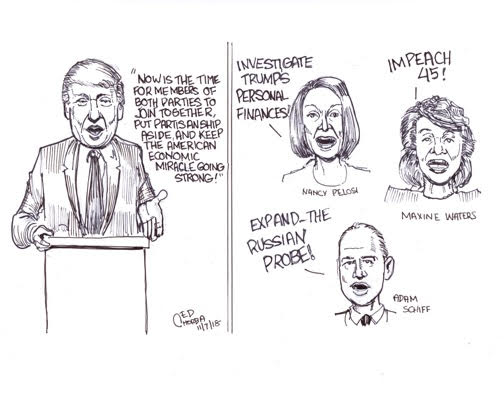 "NOW IS THE TIME
FOR MEMBERS OF
BOTH PARTIES TO
JOIN TOGETHER,
PUT PARTISANSHIP
ASIDE, AND KEEP
THE AMERICAN
ECONOMIC
MIRACLE GOING
STRONG!"
11/7/18
INVESTIGATE
TRUMP'S
PERSONAL
FINANCES!
NANCY PELOSI
IMPEACH
45!
MAXINE WATERS
EXPAND THE
RUSSIAN
PROBE!
ADAM
SCHIFF